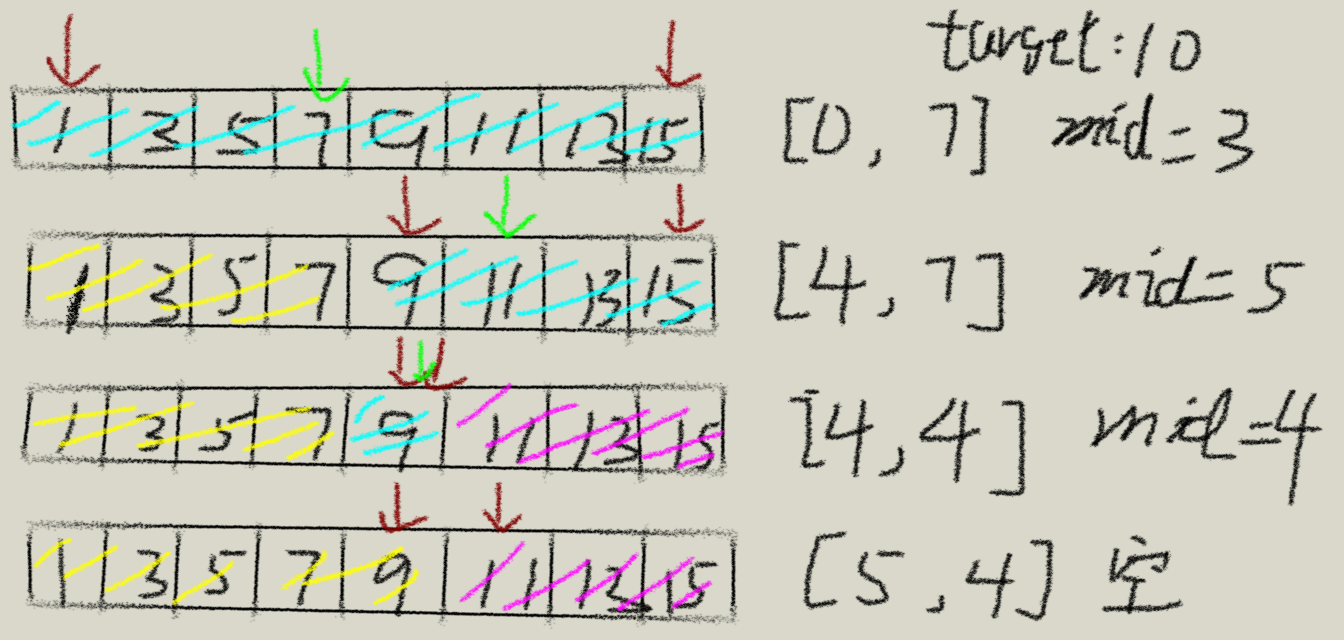 target:10
1 3 5 7 9 11 13 15 [0, 7] mid=3
1 3 5 7 9 11 13 15 [4, 7] mid=5
1 3 5 7 9 11 13 15 [4,4] mid=4
1 3 5 7 9 11 13 15 [5,4] 空